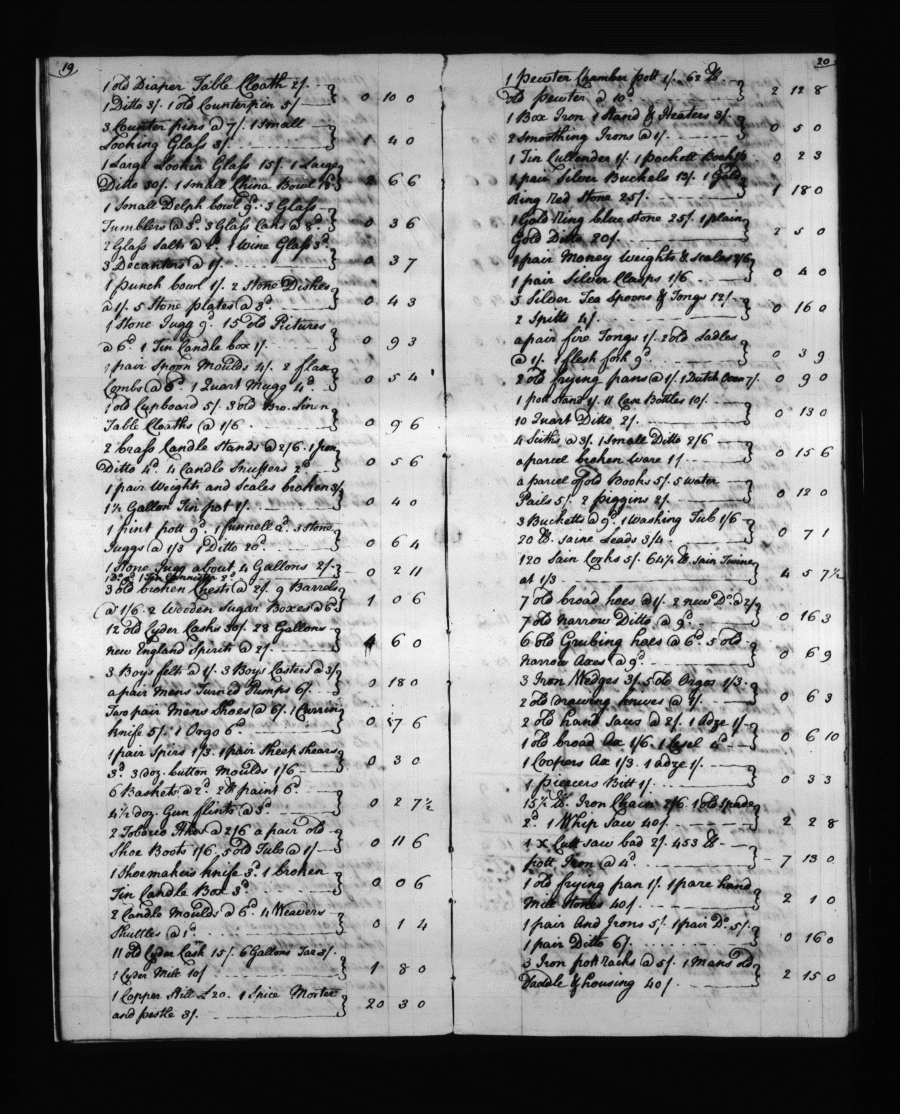 19
1 old Diaper Table Cloath 2/.
1 Ditto 3/. 1 old Counterpin 5/ 0 10 0
3 Counterpins @ 7/. 1 Small
Looking Glass 3/. 1 4 0
1 Large Lookin Glass 15/. 1 Large
Ditto 30/. 1 Small China Bowl 2 6 6
1 Small Delph bowl 9d. 3 Glass
Tumblers @ 3d. 3 Glass Cans @ 8d. 0 3 6
2 Glass Salts @ 2d. 1 Wine Glass 3d.
3 Decanters @ 1/. 0 3 7
1 punch bowl 1/. 2 Stone Dishes
@ 1/. 5 Stone plates @ 3d. 0 4 3
1 Stone Jugg 9d. 15 old Pictures
@ 6d. 1 Tin Candle box 1/. 0 9 3
1 pair Spoon Moulds 4/. 2 flax
Combs @ 6d. 1 Quart Mugg 4d. 0 5 4
1 old Cupboard 5/. 3 old Bro. Linin
Table Cloaths @ 1/6 0 9 6
2 brass Candle Stands @ 2/6. 1 Iron
Ditto 4d. 4 Candle Snuffers 2d. 0 5 6
1 pair Weights and Scales broken 3/.
1½ Gallon Tin pot 1/. 0 4 0
1 pint pott 9d. 1 funnell 2d. 3 Stone
Juggs @ 1/3 1 Ditto 20d. 0 6 4
1 Stone Jugg about 4 Gallons 2/.
1 Do. 9d. 1 Tin Cannister 2d. 0 2 11
3 old broken Chests @ 2/. 9 Barrels
@ 1/6. 2 Wooden Sugar Boxes @ 6d. 1 0 6
12 old Cyder Casks 30/. 28 Gallons
new England Spirits @ 2/. 4 6 0
3 Boys felts @ 1/. 3 Boys Castors @ 3/.
a pair Mens Turned Pumps 6/. 0 18 0
Two pair Mens Shoes @ 6/. 1 Curring
knife 5/. 1 Orgo 6d. 0 17 6
1 pair Spirs 1/3. 1 pair Sheep Shears
3d. 3 doz. button Moulds 1/6 0 3 0
6 Baskets @ 2d. 2 lb paint 6d.
4½ doz. Gun flints @ 3d. 0 2 7½
2 Tobacco @ 2/6 a pair old
Shoe Boots 1/6. 5 old Tubs @ 1/ 0 11 6
1 Shoemakers knife 3d. 1 broken
Tin Candle Box 3d. 0 0 6
2 Candle Moulds @ 6d. 4 Weavers
Shuttles @ 1d. 0 1 4
11 old Cyder Cask 15/. 6 Gallons Tar 3/.
1 Cyder Mill 10/ 1 8 0
1 Copper Still £20. 1 Spice Morter
and pestle 3/. 20 3 0
20
1 Pewter Chamber pott 1/. 62 lb
old pewter @ 10d. 2 12 8
1 Box Iron 1 Stand & Heaters 3/.
2 Smoothing Irons @ 1/. 0 5 0
1 Tin Cullender 1/. 1 pockett Book 0 2 3
1 pair Silver Buckels 13/. 1 Gold
Ring Red Stone 25/. 1 18 0
1 Gold Ring blue stone 25/. 1 plain
Gold Ditto 20/. 2 5 0
1 pair Money Weights & Scales 2/6
1 pair Silver Clasps 1/6 0 4 0
5 Silder Tea Spoons & Tongs 12/.
2 Spitts 4/. 0 16 0
a pair fire Tongs 1/. 2 old Sadles
@ 1/. 1 flesh fork 9d. 0 3 9
2 old frying pans @ 1/. 1 Dutch Oven 7/. 0 9 0
1 pott Stand 1/. 11 Case Bottles 10/.
10 Quart Ditto 2/. 0 13 0
4 Siths @ 3/. 1 Small Ditto 2/6
a parcel broken Ware 1/ 0 15 6
a parcel of old Books 5/. 5 water
Pails 5/. 2 piggins 2/. 0 12 0
3 Bucketts @ 9d. 1 Washing Tub 1/6
20 lb. Saine Leads 3/4 0 7 1
120 Sain Corks 5/. 64½ lb. Sain Twine
at 1/3 4 5 7½
7 old broad hoes @ 1/. 2 new Do. @ 2/.
7 old narrow Ditto @ 9d. 0 16 3
6 old Grubing hoes @ 6d. 5 old
narrow Axes @ 9d. 0 6 9
3 Iron Wedges 3/. 5 old Orgos 1/3.
2 old drawing knives @ 1/. 0 6 3
2 old hand Saws @ 2/. 1 Adze 1/.
1 old broad Ax 1/6. 1 Cesel 4d. 0 6 10
1 Coopers Ax 1/3. 1 adze 1/.
1 piercers Bitt 1/. 0 3 3
15½ lb. Iron Chain 2/6. 1 old Spade
2d. 1 Whip Saw 40/. 2 2 8
1 X Cutt saw bad 2/. 453 lb
pott Iron @ 4d. 7 13 0
1 old frying pan 1/. 1 pare hand
Mill Stones 40/. 2 1 0
1 pair And Irons 5/. 1 pair Do. 5/.
1 pair Ditto 6/. 0 16 0
3 Iron pott racks @ 5/. 1 Mans old
Saddle & housing 40/. 2 15 0